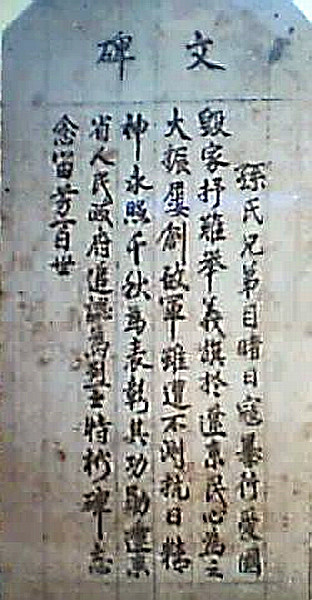 碑文
孫氏兄弟目睹日寇暴行愛國
毀家抒難举義旗於遼東民心為之
大振屡創敌軍雖遭不测抗日精
神永照千秋為表彰其功勋遼東
省人民政府追認為烈士特树碑志
念留芳百世